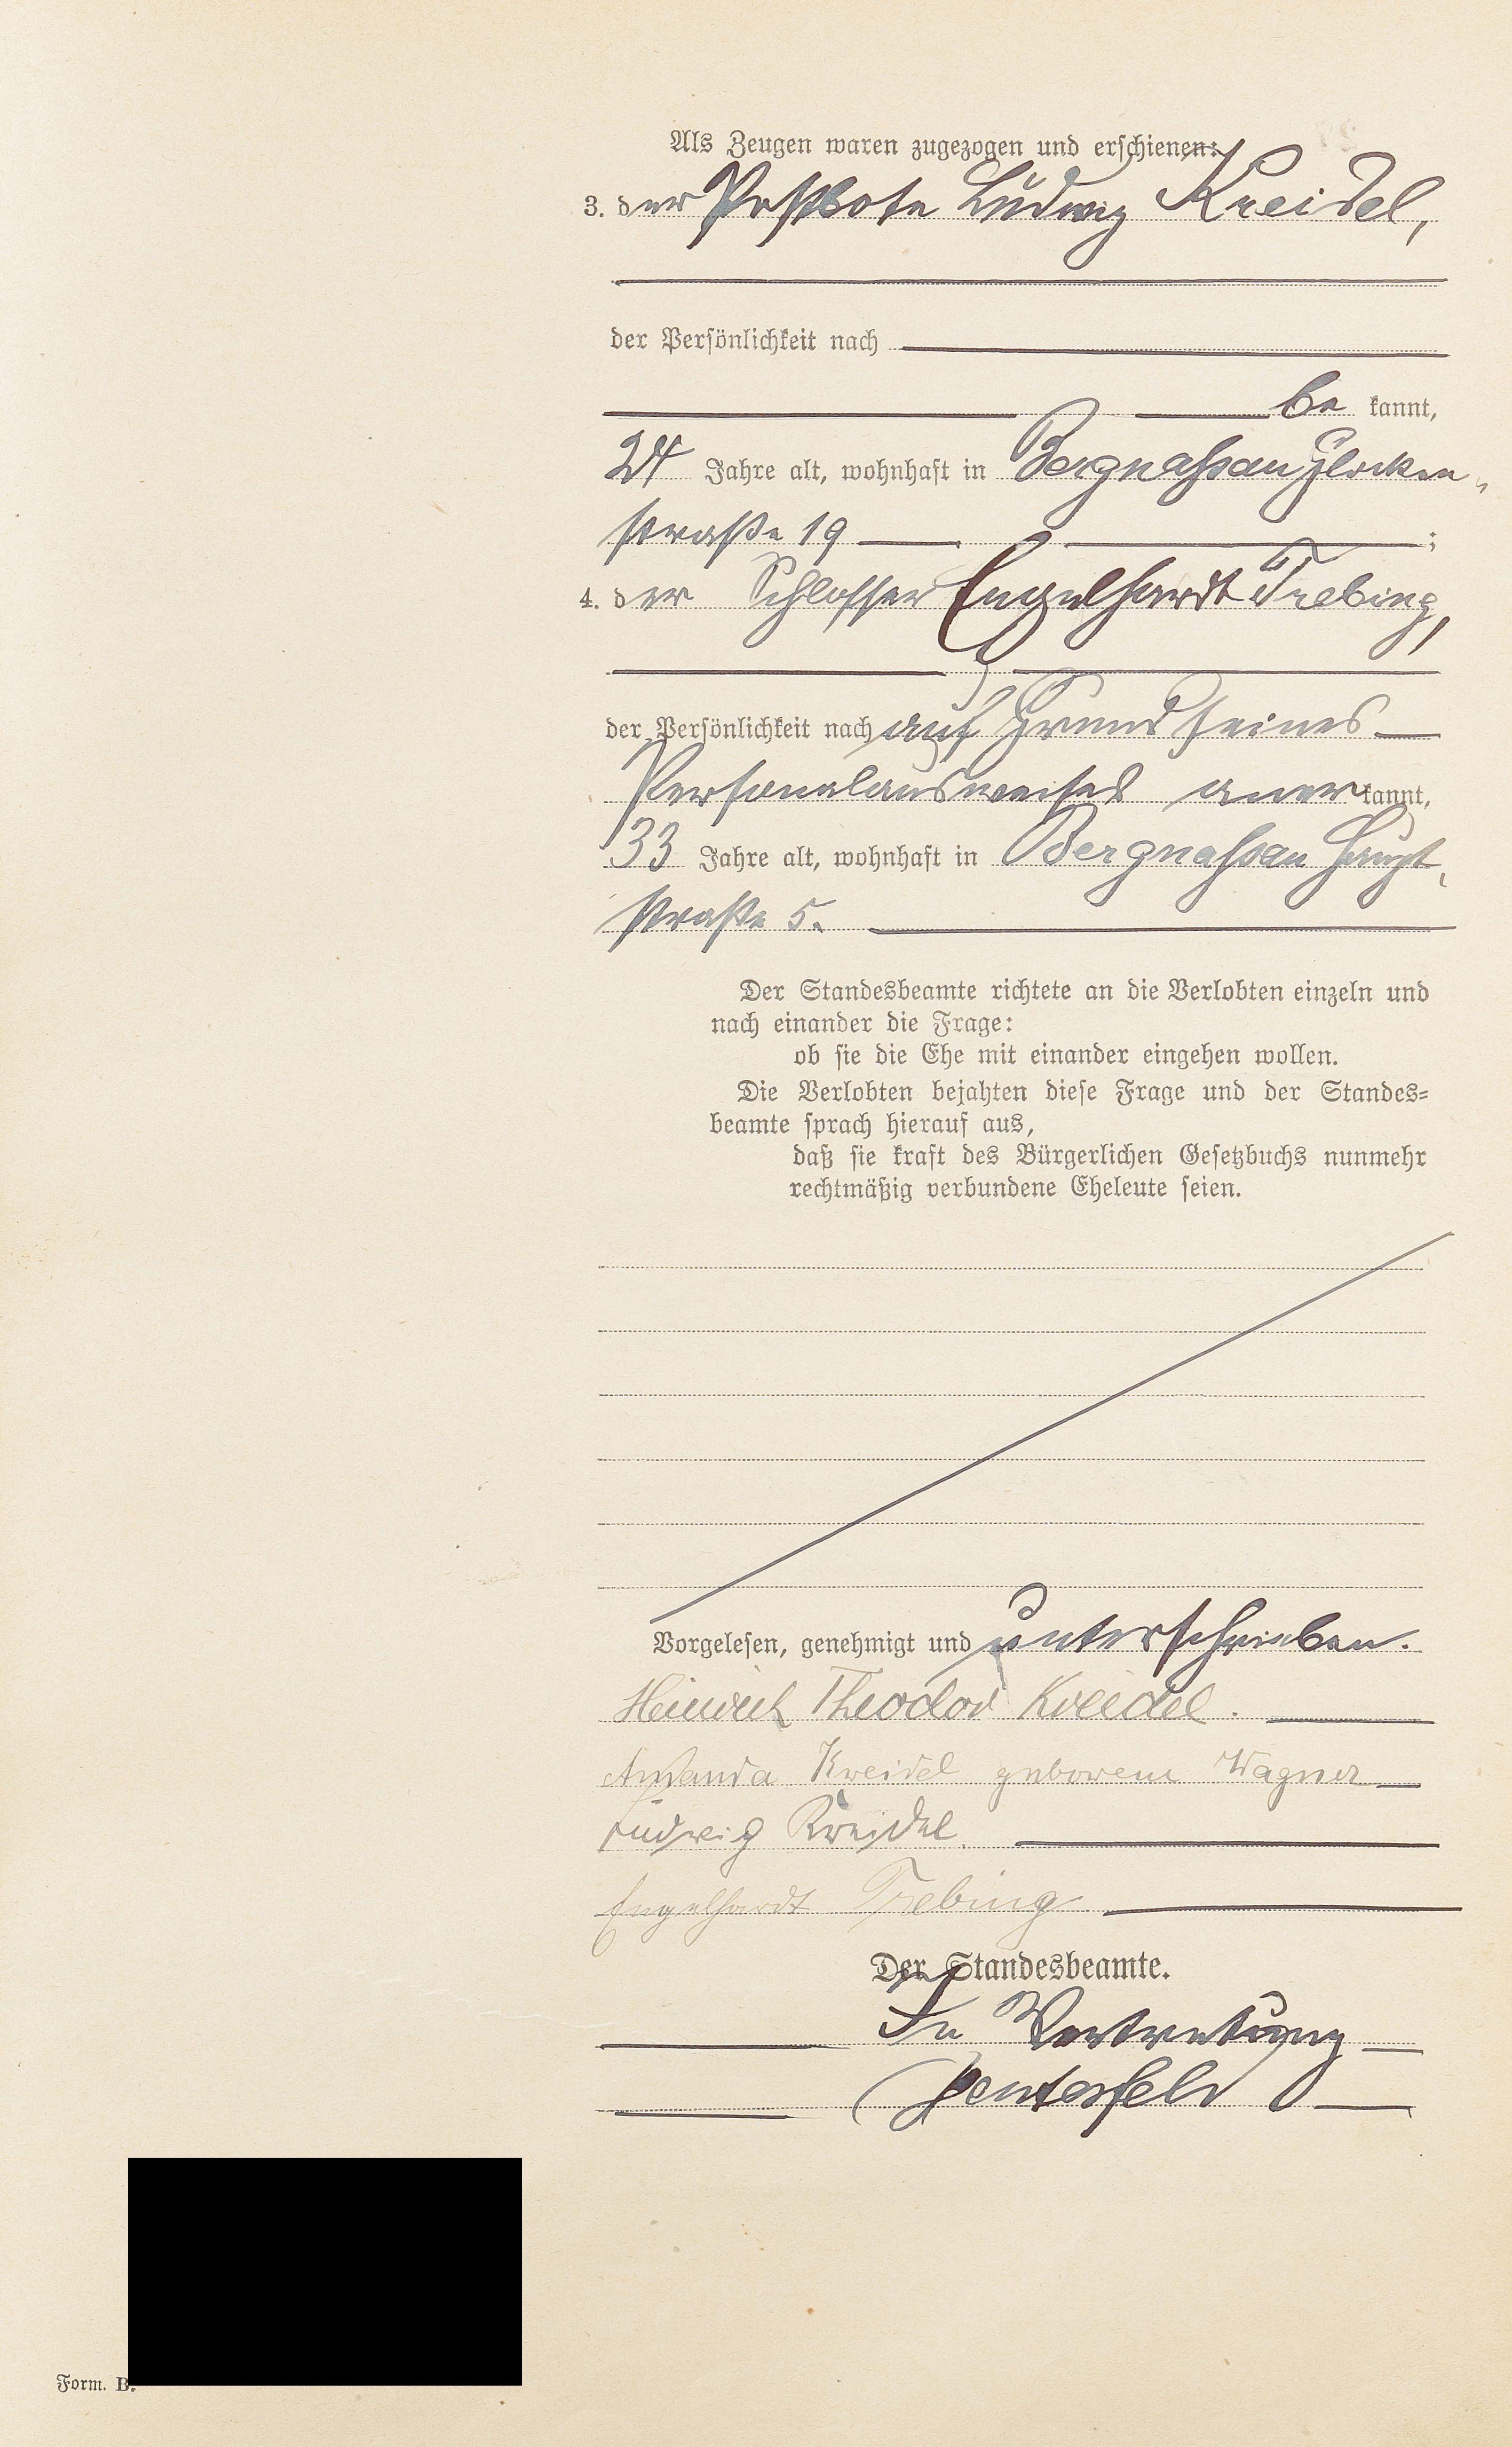 Als Zeugen waren zugezogen und erschienen:
3. der Postbote Ludwig Kreidel,
der Persönlichkeit nach
be kannt,
24 Jahre alt, wohnhaft in Bergnassau Glocken-
straße 19 ;
4. der Schlosser Engelhardt Trebing,
der Persönlichkeit nach auf Grund seines
Personalausweises aner kannt,
33 Jahre alt, wohnhaft in Bergnassau Haupt-
straße 5.
Der Standesbeamte richtete an die Verlobten einzeln und
nach einander die Frage:
ob sie die Ehe mit einander eingehen wollen.
Die Verlobten bejahten diese Frage und der Standes-
beamte sprach hierauf aus,
daß sie kraft des Bürgerlichen Gesetzbuchs nunmehr
rechtmäßig verbundene Eheleute seien.
Vorgelesen, genehmigt und unterschrieben.
Heinrich Theodor Kreidel.
Amanda Kreidel geborene Wagner
Ludwig Kreidel
Engelhardt Trebing
Der Standesbeamte.
In Vertretung
Form. B.